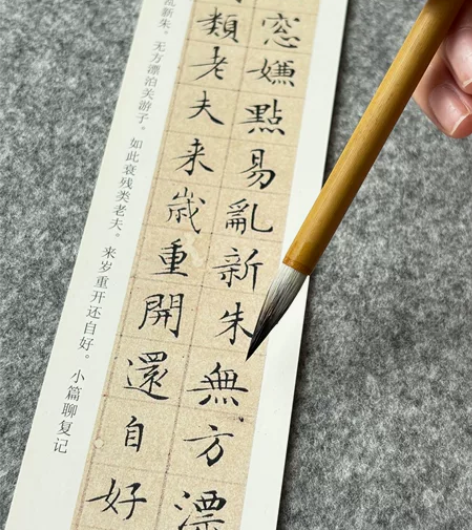 窓嫌點易亂新朱無方漂
類老夫来歲重開還自好
乱新朱。无方漂泊关游子。如此衰残类老夫。来岁重开还自好。小篇聊复记